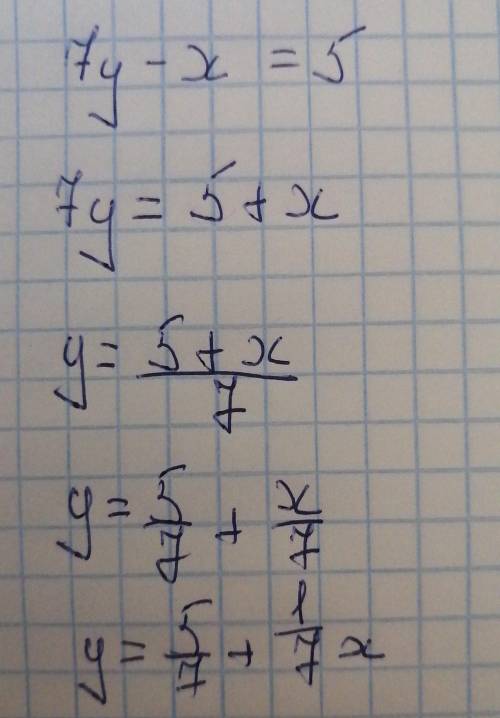 7y - x = 5
7y = 5 + x
y = (5 + x)/7
y = 5/7 + x/7
y = 5/7 + 1/7 x